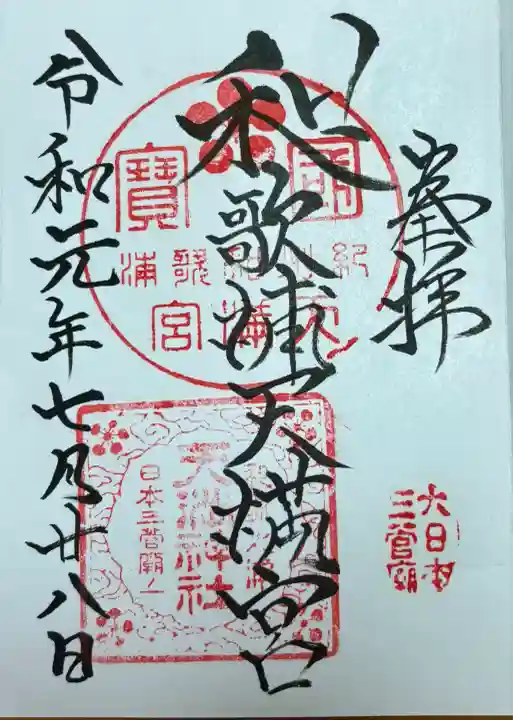 奉拝
大日本
三菅廟
和歌浦天満宮
國寶
紀州和歌浦
天満宮
天満神社
日本三菅廟ノ一
令和元年七月廿八日